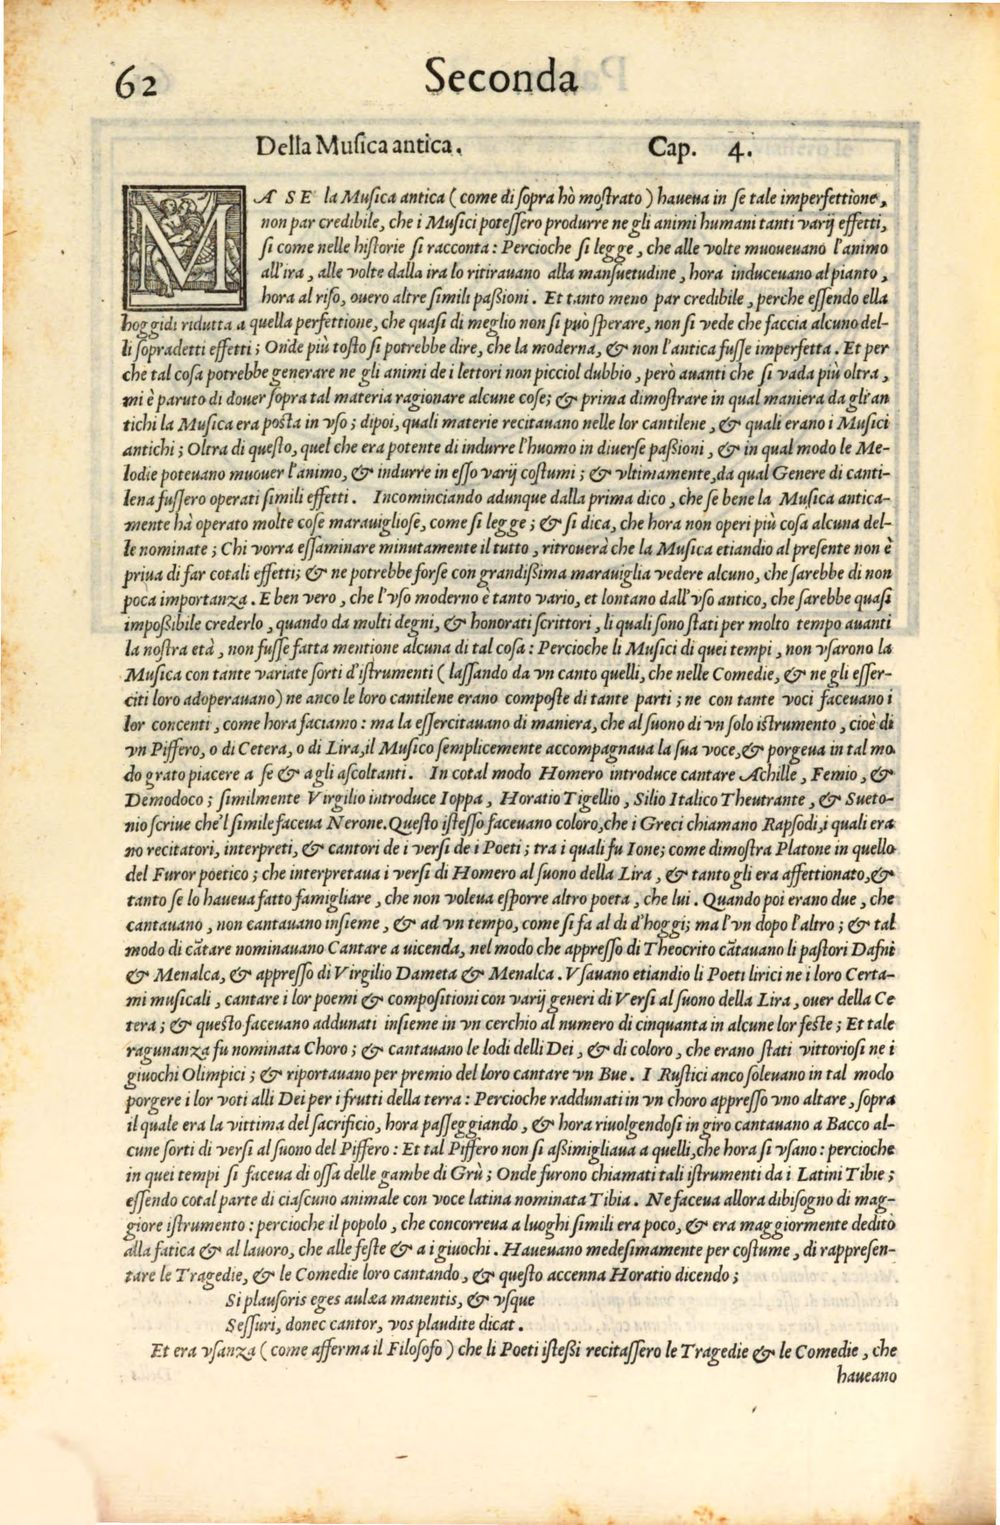 62
Seconda
Della Muſica antica. Cap. 4.
MA SE la Muſica antica (come di ſopra hò moſtrato) haueua in ſe tale imperfettione,
non par credibile, che i Muſici poteſſero produrre ne gli animi humani tanti varij effetti,
ſi come nelle hiſtorie ſi racconta: Percioche ſi legge, che alle volte muoueuano l'animo
all'ira, alle volte dalla ira lo ritirauano alla manſuetudine, hora induceuano al pianto,
hora al riſo, ouero altre ſimili paßioni. Et tanto meno par credibile, perche eſſendo ella
hoggidi ridutta a quella perfettione, che quaſi di meglio non ſi può ſperare, non ſi vede che faccia alcuno del-
li ſopradetti effetti; Onde più toſto ſi potrebbe dire, che la moderna, & non l'antica fuſſe imperfetta. Et per
che tal coſa potrebbe generare ne gli animi de i lettori non picciol dubbio, però auanti che ſi vada più oltra,
mi è paruto di douer ſopra tal materia ragionare alcune coſe; & prima dimoſtrare in qual maniera da gli an
tichi la Muſica era poſta in vſo; dipoi, quali materie recitauano nelle lor cantilene, & quali erano i Muſici
antichi; Oltra di queſto, quel che era potente di indurre l'huomo in diuerſe paßioni, & in qual modo le Me-
lodie poteuano muouer l'animo, & indurre in eſſo varij coſtumi; & vltimamente, da qual Genere di canti-
lena fuſſero operati ſimili effetti. Incominciando adunque dalla prima dico, che ſe bene la Muſica antica-
mente hà operato molte coſe marauiglioſe, come ſi legge; & ſi dica, che hora non operi più coſa alcuna del-
le nominate; Chi vorra eſſaminare minutamente il tutto, ritrouerà che la Muſica etiandio al preſente non è
priua di far cotali effetti; & ne potrebbe forſe con grandißima marauiglia vedere alcuno, che ſarebbe di non
poca importanza. E ben vero, che l'vſo moderno è tanto vario, et lontano dall'vſo antico, che ſarebbe quaſi
impoßibile crederlo, quando da molti degni, & honorati ſcrittori, li quali ſono ſtati per molto tempo auanti
la noſtra età, non fuſſe fatta mentione alcuna di tal coſa: Percioche li Muſici di quei tempi, non vſarono la
Muſica con tante variate ſorti d'iſtrumenti (laſſando da vn canto quelli, che nelle Comedie, & ne gli eſſer-
citi loro adoperauano) ne anco le loro cantilene erano compoſte di tante parti; ne con tante voci faceuano i
lor concenti, come hora faciamo: ma la eſſercitauano di maniera, che al ſuono di vn ſolo iſtrumento, cioè di
vn Piffero, o di Cetera, o di Lira, il Muſico ſemplicemente accompagnaua la ſua voce, & porgeua in tal mo
do grato piacere a ſe & a gli aſcoltanti. In cotal modo Homero introduce cantare Achille, Femio, &
Demodoco; ſimilmente Virgilio introduce Ioppa, Horatio Tigellio, Silio Italico Theutrante, & Sueto-
nio ſcriue che'l ſimile faceua Nerone. Queſto iſteſſo faceuano coloro, che i Greci chiamano Rapſodi, i quali era
no recitatori, interpreti, & cantori de i verſi de i Poeti; tra i quali fu Ione; come dimoſtra Platone in quello
del Furor poetico; che interpretaua i verſi di Homero al ſuono della Lira, & tanto gli era affettionato, &
tanto ſe lo haueua fatto famigliare, che non voleua eſporre altro poeta, che lui. Quando poi erano due, che
cantauano, non cantauano inſieme, & ad vn tempo, come ſi fa al di d'hoggi; ma l'vn dopo l'altro; & tal
modo di cātare nominauano Cantare a uicenda, nel modo che appreſſo di Theocrito cātauano li paſtori Dafni
& Menalca, & appreſſo di Virgilio Dameta & Menalca. Vſauano etiandio li Poeti lirici ne i loro Certa-
mi muſicali, cantare i lor poemi & compoſitioni con varij generi di Verſi al ſuono della Lira, ouer della Ce
tera; & queſto faceuano addunati inſieme in vn cerchio al numero di cinquanta in alcune lor feſte; Et tale
ragunanza fu nominata Choro; & cantauano le lodi delli Dei, & di coloro, che erano ſtati vittorioſi ne i
giuochi Olimpici; & riportauano per premio del loro cantare vn Bue. I Ruſtici anco ſoleuano in tal modo
porgere i lor voti alli Dei per i frutti della terra: Percioche raddunati in vn choro appreſſo vno altare, ſopra
il quale era la vittima del ſacrificio, hora paſſeggiando, & hora riuolgendoſi in giro cantauano a Bacco al-
cune ſorti di verſi al ſuono del Piffero: Et tal Piffero non ſi aßimigliaua a quelli, che hora ſi vſano: percioche
in quei tempi ſi faceua di oſſa delle gambe di Grù; Onde furono chiamati tali iſtrumenti da i Latini Tibie;
eſſendo cotal parte di ciaſcuno animale con voce latina nominata Tibia. Ne faceua allora dibiſogno di mag-
giore iſtrumento: percioche il popolo, che concorreua a luoghi ſimili era poco, & era maggiormente dedito
alla fatica & al lauoro, che alle feſte & a i giuochi. Haueuano medeſimamente per coſtume, di rappreſen-
tare le Tragedie, & le Comedie loro cantando, & queſto accenna Horatio dicendo;
Si plauſoris eges aulæa manentis, & vſque
Seſſuri, donec cantor, vos plaudite dicat.
Et era vſanza (come afferma il Filoſofo) che li Poeti iſteßi recitaſſero le Tragedie & le Comedie, che
haueano